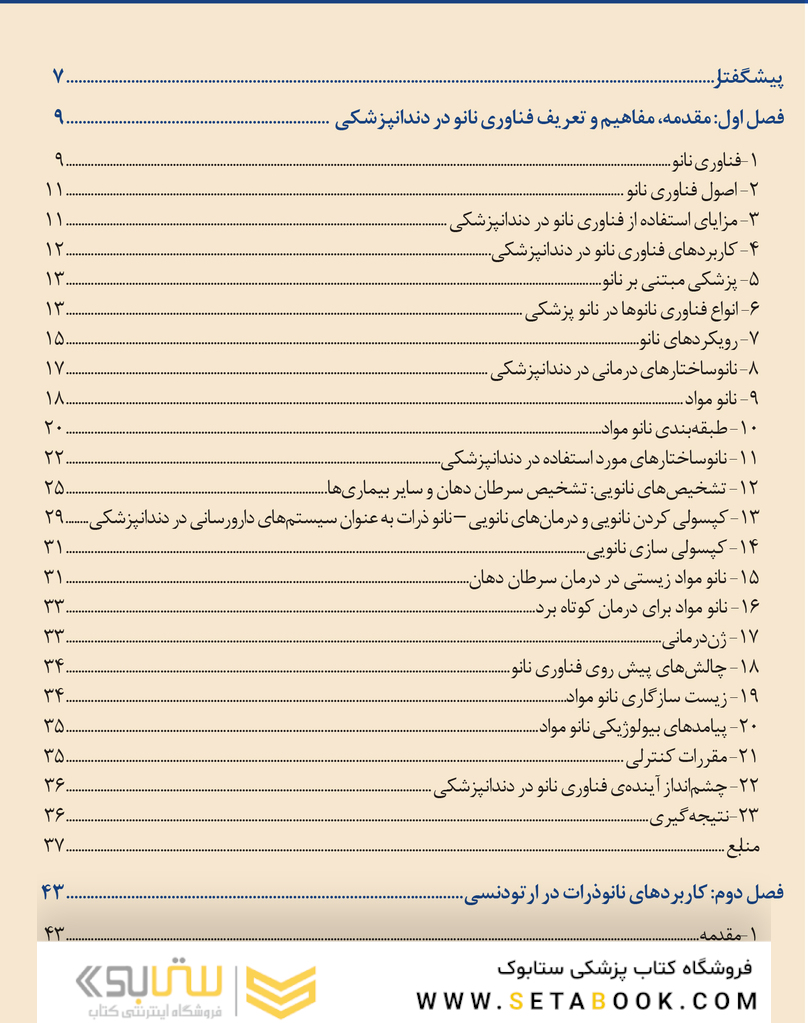 پیشگفتار ۷
فصل اول: مقدمه، مفاهیم و تعریف فناوری نانو در دندانپزشکی ۹
۱-فناوری نانو ۹
۲- اصول فناوری نانو ۱۱
۳- مزایای استفاده از فناوری نانو در دندانپزشکی ۱۱
۴- کاربردهای فناوری نانو در دندانپزشکی ۱۲
۵- پزشکی مبتنی بر نانو ۱۳
۶- انواع فناوری نانوها در نانو پزشکی ۱۳
۷- رویکردهای نانو ۱۵
۸- نانوساختارهای درمانی در دندانپزشکی ۱۷
۹- نانو مواد ۱۸
۱۰- طبقه‌بندی نانو مواد ۲۰
۱۱- نانوساختارهای مورد استفاده در دندانپزشکی ۲۲
۱۲- تشخیص‌های نانویی: تشخیص سرطان دهان و سایر بیماری‌ها ۲۵
۱۳- کپسولی کردن نانویی و درمان‌های نانویی – نانو ذرات به عنوان سیستم‌های دارورسانی در دندانپزشکی ۲۹
۱۴- کپسولی سازی نانویی ۳۱
۱۵- نانو مواد زیستی در درمان سرطان دهان ۳۱
۱۶- نانو مواد برای درمان کوتاه برد ۳۳
۱۷- ژن‌درمانی ۳۳
۱۸- چالش‌های پیش روی فناوری نانو ۳۴
۱۹- زیست سازگاری نانو مواد ۳۴
۲۰- پیامدهای بیولوژیکی نانو مواد ۳۵
۲۱- مقررات کنترلی ۳۵
۲۲- چشم‌انداز آینده‌ی فناوری نانو در دندانپزشکی ۳۶
۲۳-نتیجه‌گیری ۳۶
منابع ۳۷
فصل دوم: کاربردهای نانوذرات در ارتودنسی ۴۳
۱-مقدمه ۴۳
فروشگاه کتاب پزشکی ستابوک
WWW.SETABOOK.COM
ستابوک
فروشگاه اینترنتی کتاب